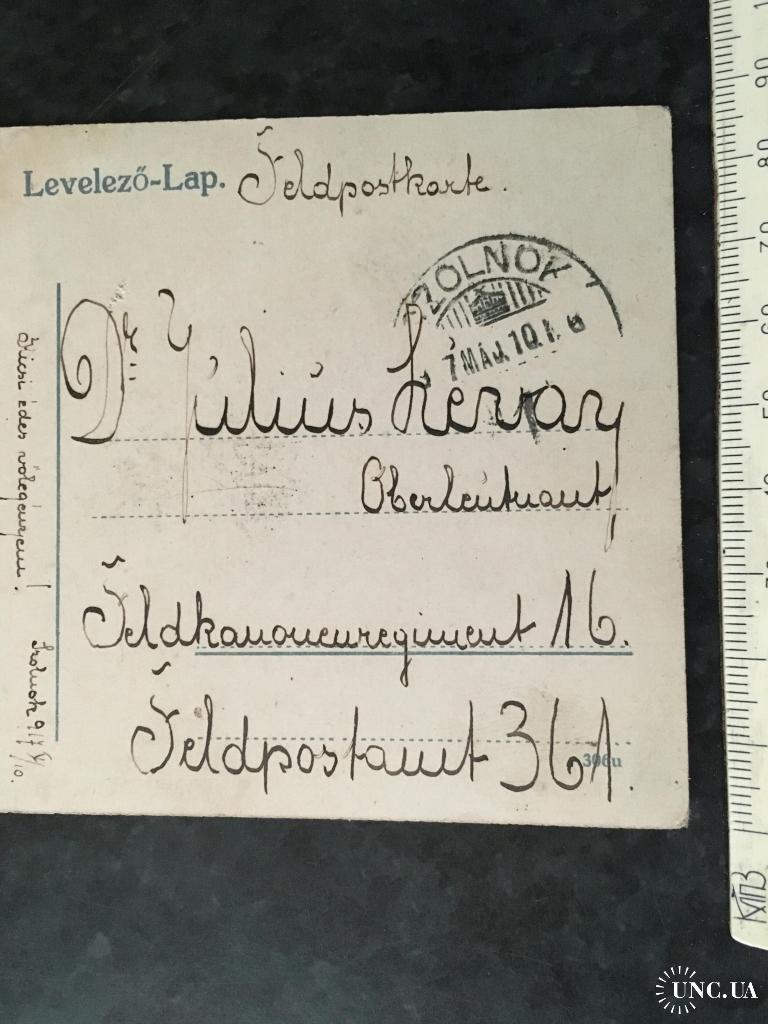 Levelező-Lap. Feldpostkarte.
SZOLNOK
7 MÁJ. 10. 1. 6
Dr. Július Lévay
Oberleutnant
Feldkanonenregiment 16.
Feldpostamt 361.
306u
Kicsi édes vőlegényem!
Szolnok 917 V/10.
90
80
70
60
50
UNC.UA